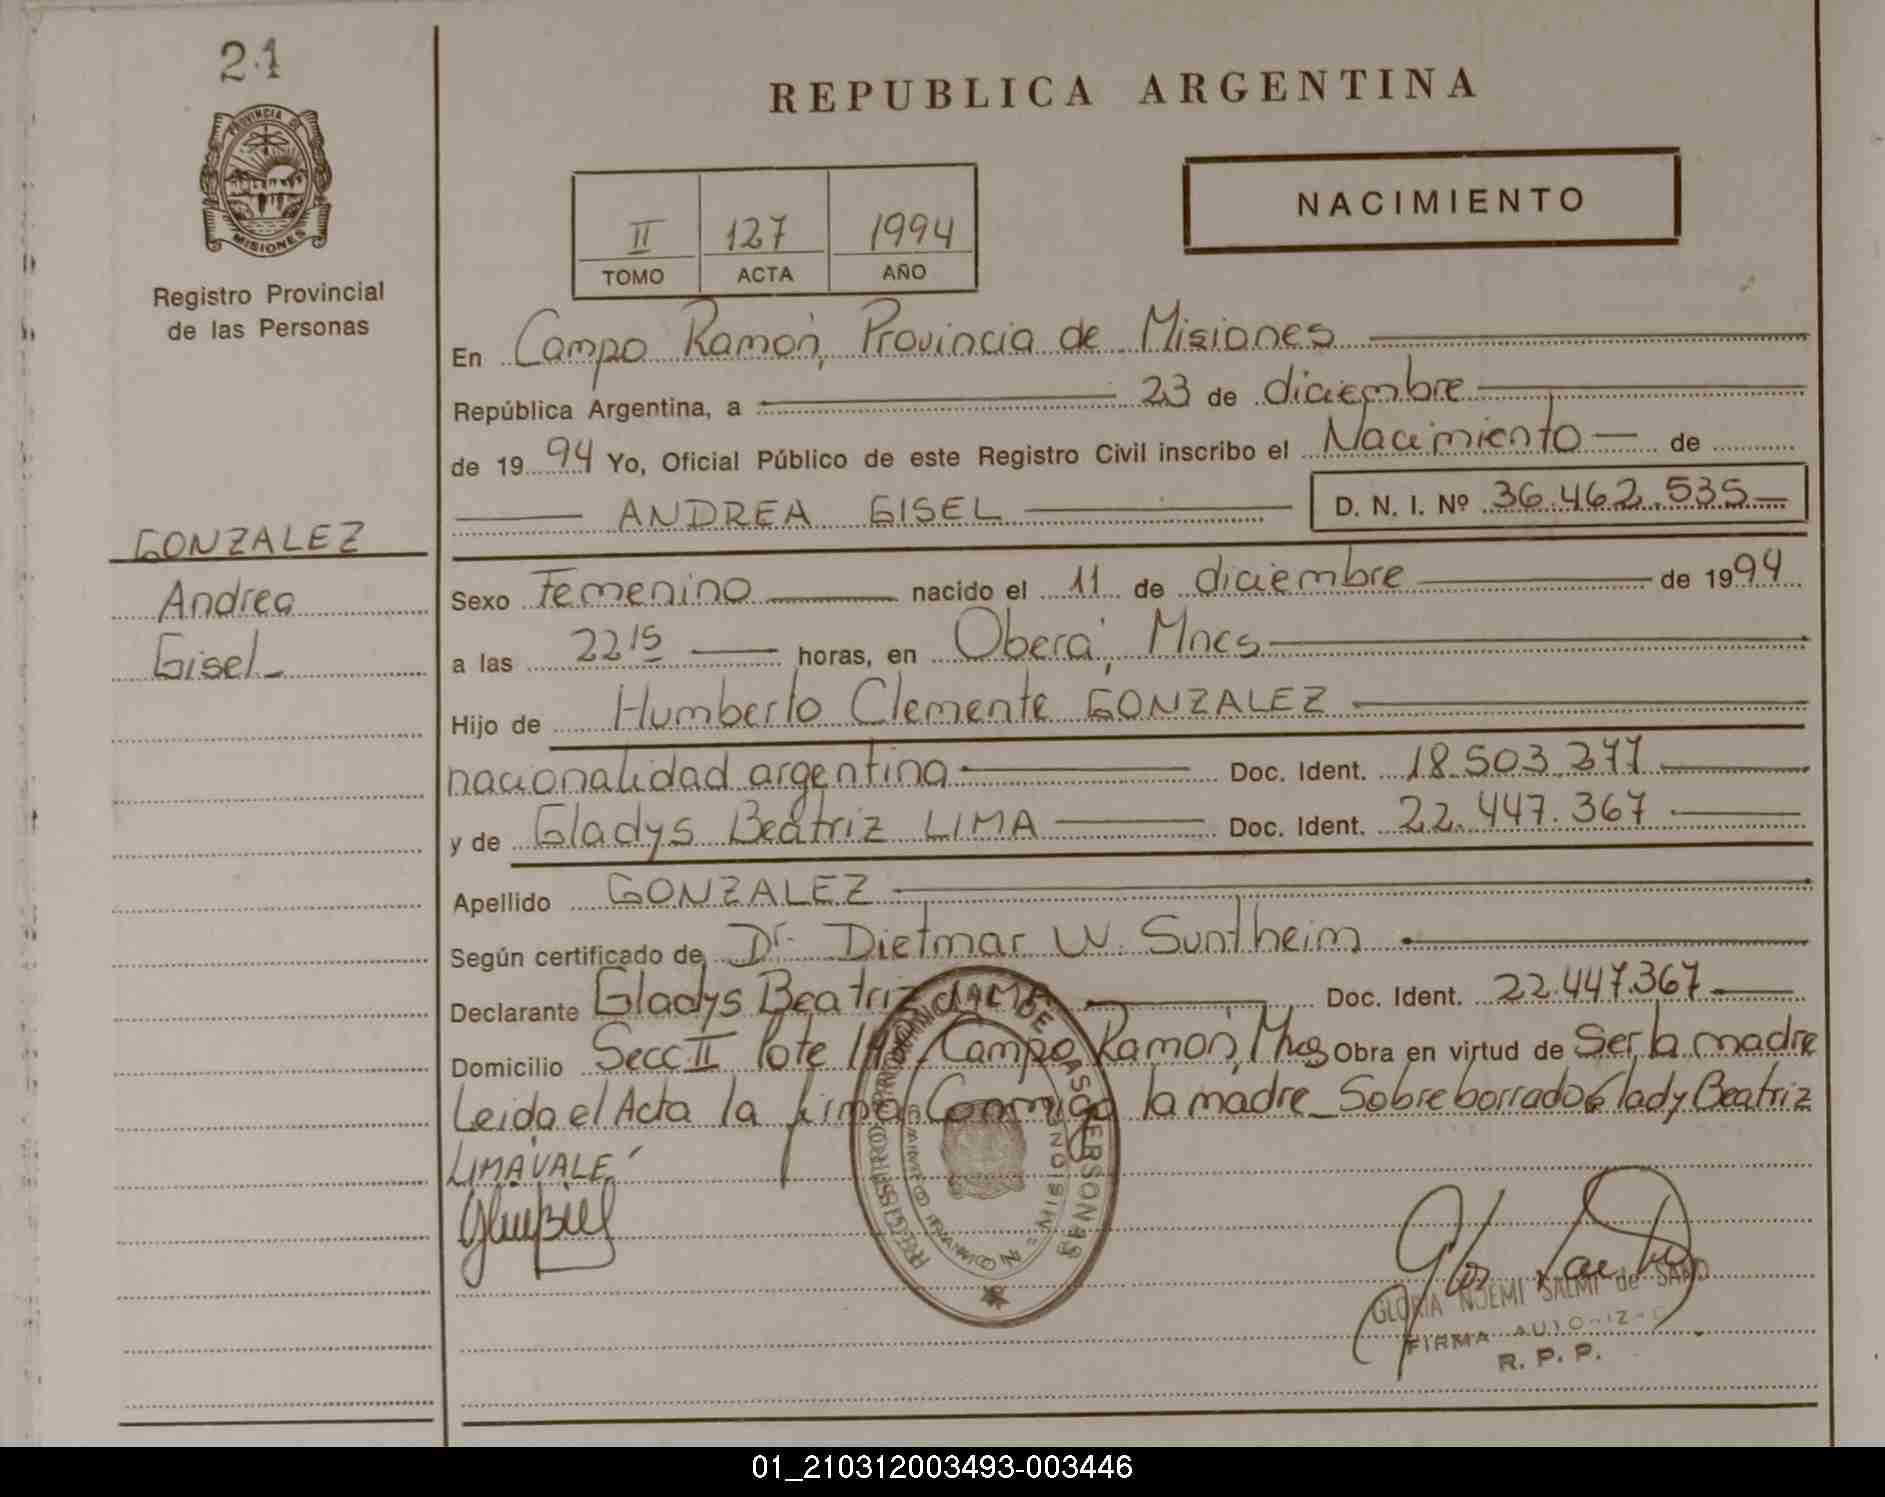 21
PROVINCIA DE
MISIONES
Registro Provincial
de las Personas
GONZALEZ
Andrea
Gisel
REPUBLICA ARGENTINA
NACIMIENTO
II 127 1994
TOMO ACTA AÑO
En Campo Ramón, Provincia de Misiones
República Argentina, a 23 de diciembre
de 1994 Yo, Oficial Público de este Registro Civil inscribo el Nacimiento de
ANDREA GISEL D. N. I. Nº 36.462.535
Sexo Femenino nacido el 11 de diciembre de 1994
a las 22 15 horas, en Oberá, Mnes
Hijo de Humberto Clemente GONZALEZ
nacionalidad argentina Doc. Ident. 18.503.277
y de Gladys Beatriz LIMA Doc. Ident. 22.447.367
Apellido GONZALEZ
Según certificado de Dr. Dietmar W. Suntheim
Declarante Gladys Beatriz LIMA Doc. Ident. 22.447.367
Domicilio Secc II lote Campo Ramón, Mnes Obra en virtud de Ser la madre
Leida el Acta la firma Conmigo la madre_ Sobreborrado Glady Beatriz
LIMA VALE
GLORIA NOEMI SALMI de
FIRMA
R. P. P.
01_210312003493-003446